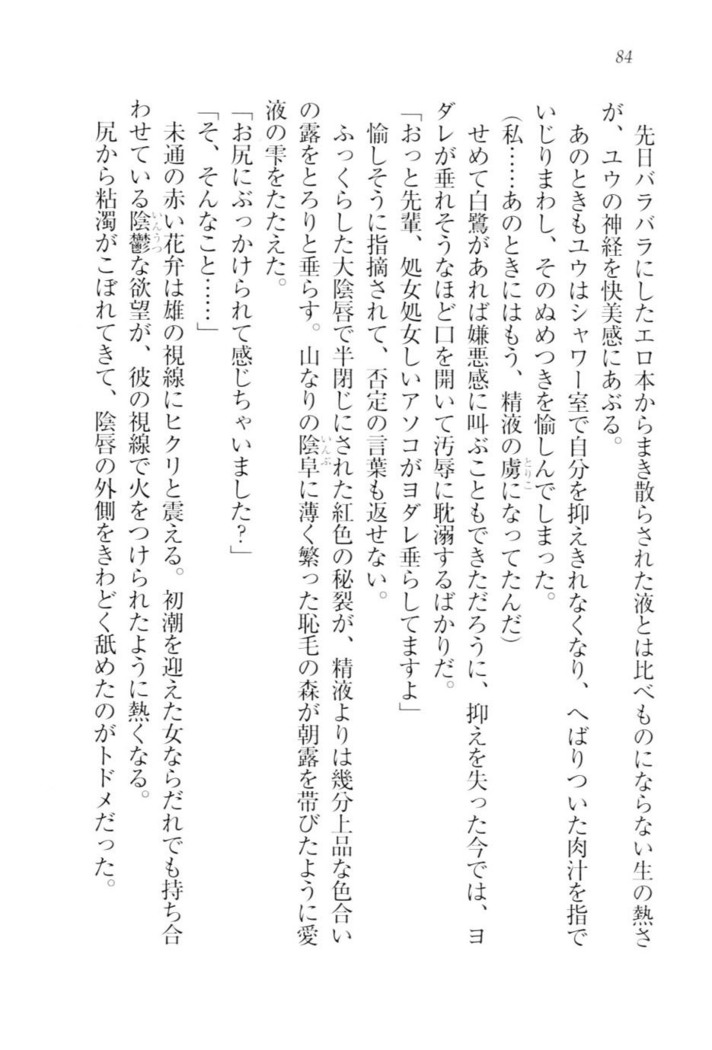 84
先日バラバラにしたエロ本からまき散らされた液とは比べものにならない生の熱さ
が、ユウの神経を快美感にあぶる。
あのときもユウはシャワー室で自分を抑えきれなくなり、へばりついた肉汁を指で
いじりまわし、そのぬめつきを愉しんでしまった。
(私……あのときにはもう、精液の虜になってたんだ)
せめて白鷺があれば嫌悪感に叫ぶこともできただろうに、抑えを失った今では、ヨ
ダレが垂れそうなほど口を開いて汚辱に耽溺するばかりだ。
「おっと先輩、処女処女しいアソコがヨダレ垂らしてますよ」
愉しそうに指摘されて、否定の言葉も返せない。
ふっくらした大陰唇で半閉じにされた紅色の秘裂が、精液よりは幾分上品な色合い
の露をとろりと垂らす。山なりの陰阜に薄く繁った恥毛の森が朝露を帯びたように愛
液の雫をたたえた。
「お尻にぶっかけられて感じちゃいました?」
「そ、そんなこと……」
未通の赤い花弁は雄の視線にヒクリと震える。初潮を迎えた女ならだれでも持ち合
わせている陰鬱な欲望が、彼の視線で火をつけられたように熱くなる。
尻から粘濁がこぼれてきて、陰唇の外側をきわどく舐めたのがトドメだった。